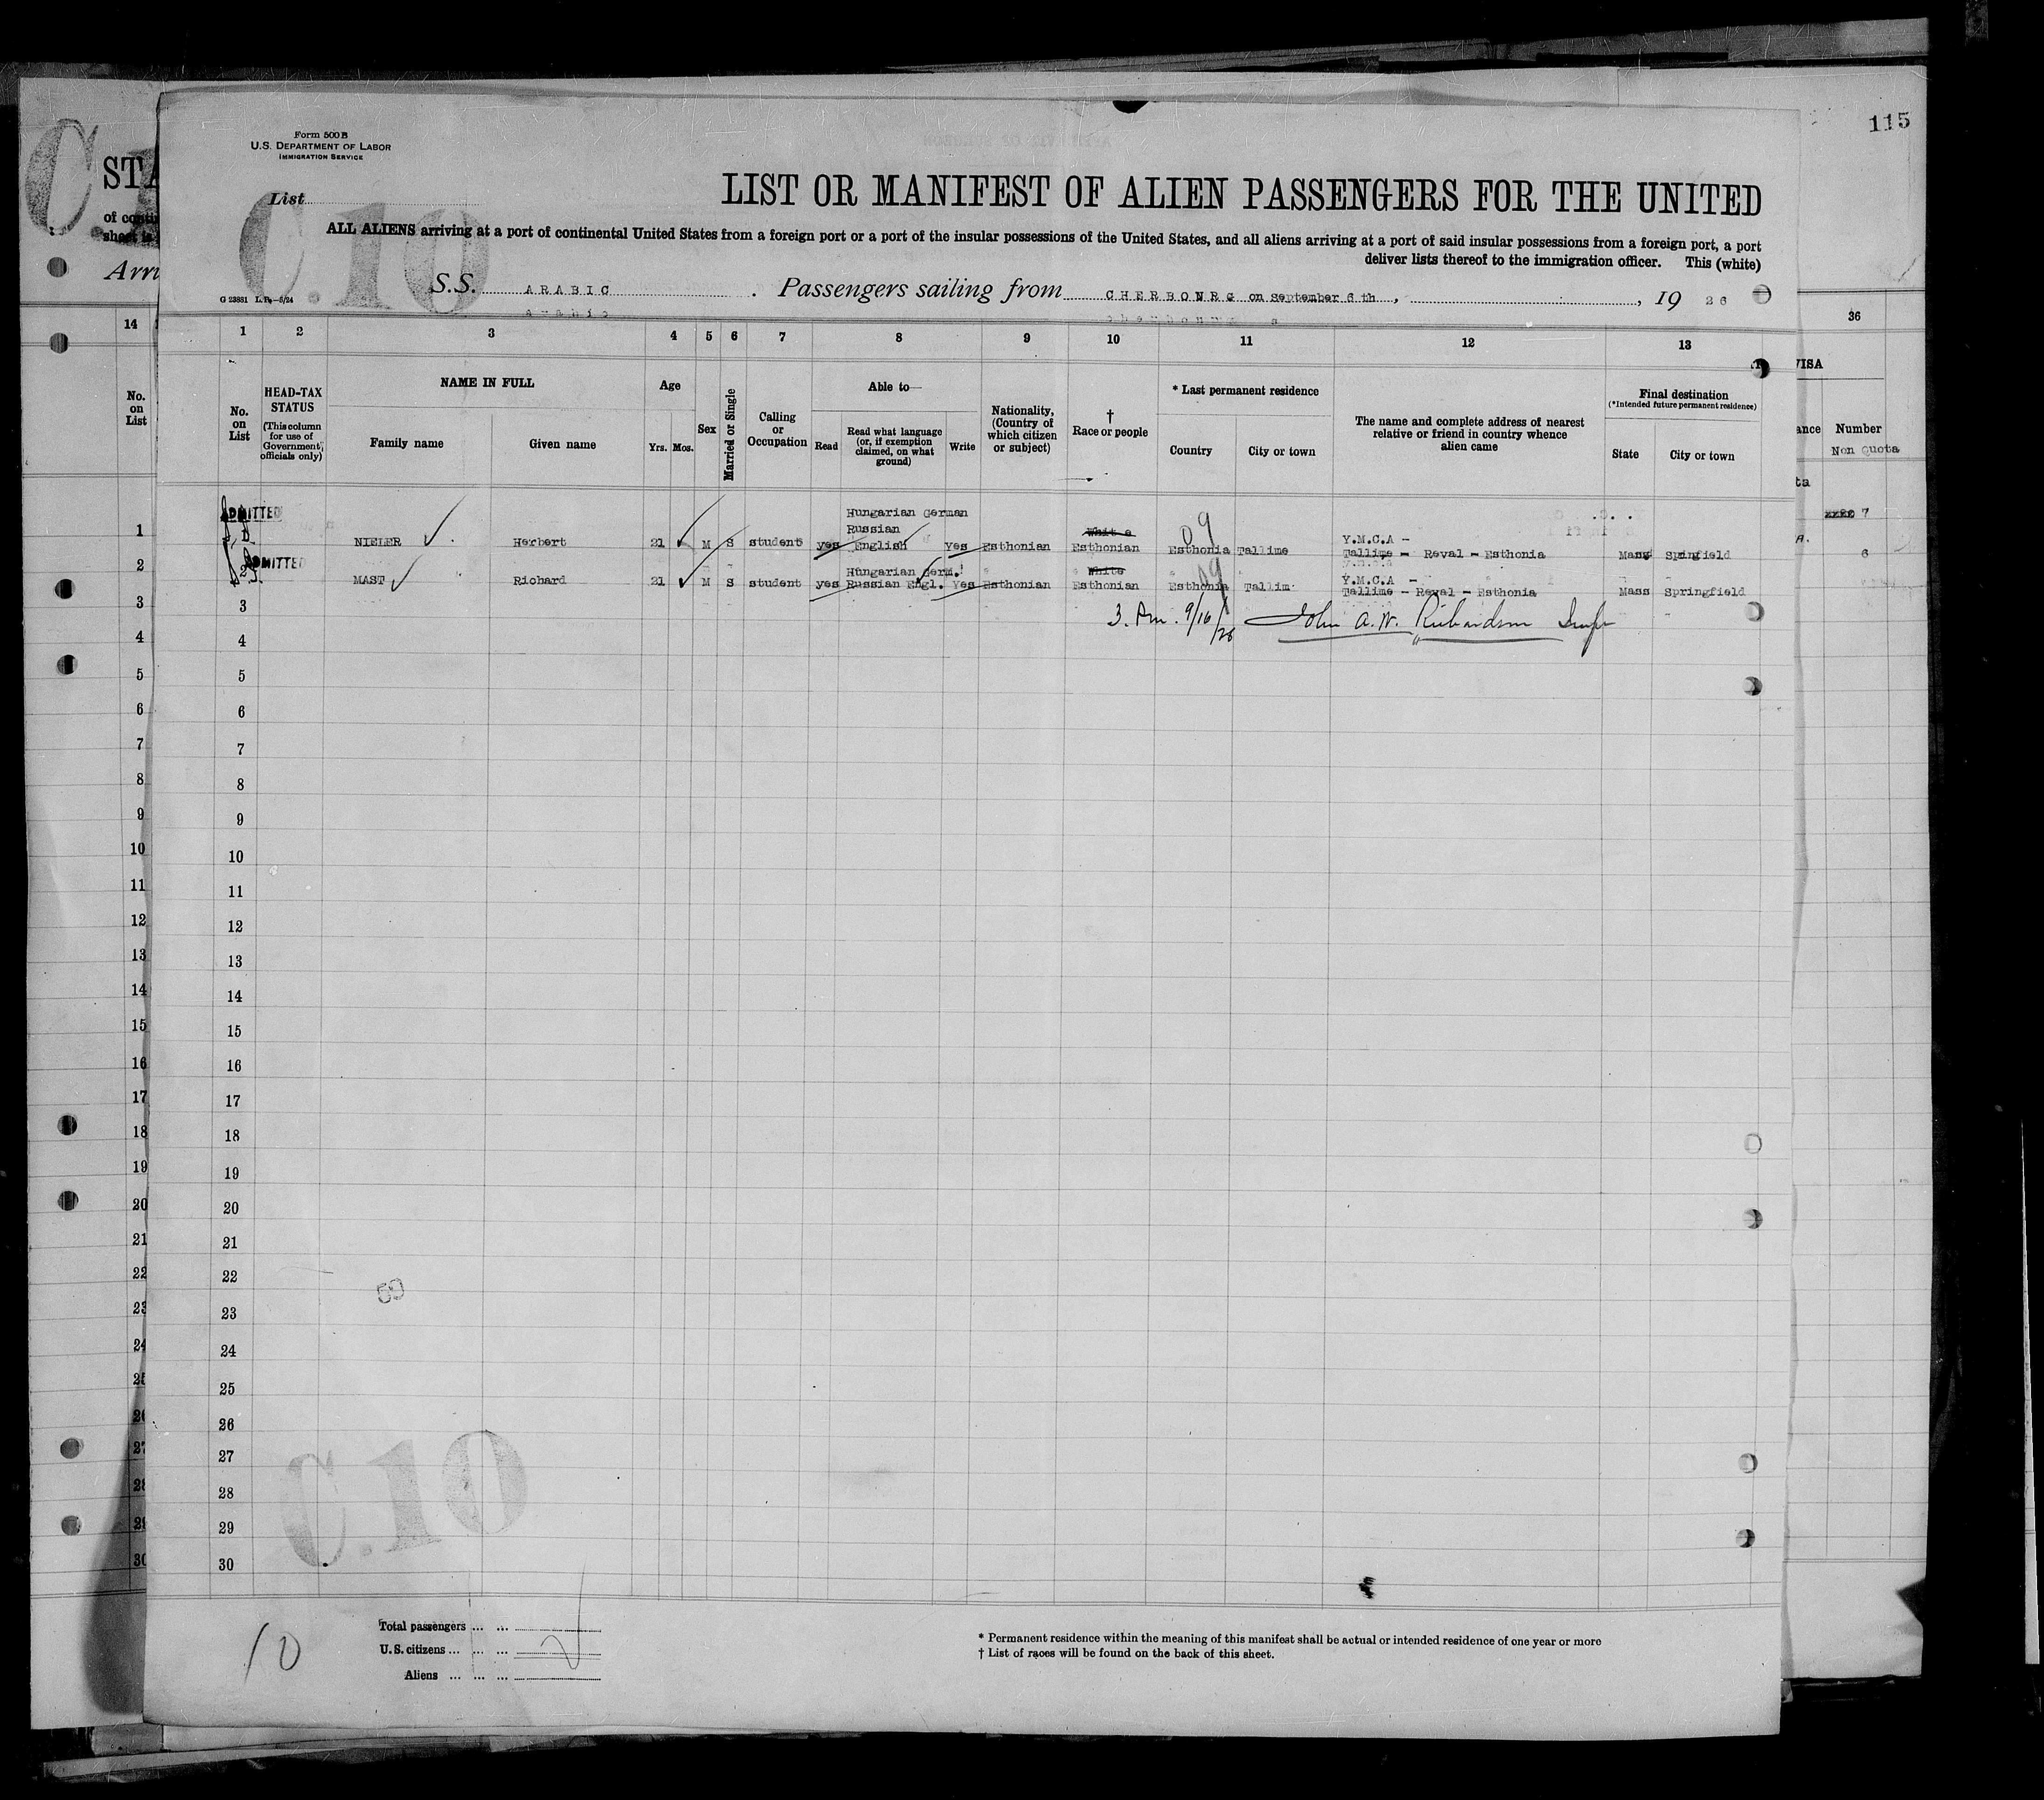 115
Form 500 B
U.S. DEPARTMENT OF LABOR
IMMIGRATION SERVICE
STA
List
C.10
LIST OR MANIFEST OF ALIEN PASSENGERS FOR THE UNITED
of contin
sheet is
ALL ALIENS arriving at a port of continental United States from a foreign port or a port of the insular possessions of the United States, and all aliens arriving at a port of said insular possessions from a foreign port, a port
deliver lists thereof to the immigration officer. This (white)
Arri
S.S. ARABIC . Passengers sailing from CHERBONRG on September 6 th , , 19 26
G 23881 L.P.—5/24
14 1 2 3 4 5 6 7 8 9 10 11 12 13 36
No. on List
No. on List
HEAD-TAX STATUS
(This column for use of Government officials only)
NAME IN FULL
Family name
Given name
Age
Yrs. Mos.
Sex
Married or Single
Calling or Occupation
Able to—
Read
Read what language (or, if exemption claimed, on what ground)
Write
Nationality, (Country of which citizen or subject)
† Race or people
* Last permanent residence
Country
City or town
The name and complete address of nearest relative or friend in country whence alien came
Final destination
(*Intended future permanent residence)
State
City or town
VISA
ance
Number
Non Quota
ta
ADMITTED
Hungarian German
Russian
1 NIELER Herbert 21 M S student yes English Yes Esthonian White Esthonian Esthonia Tallime Y.M.C.A - Tallime - Reval - Esthonia Mass Springfield
09
7
ADMITTED
Hungarian Germ.
2 MAST Richard 21 M S student yes Russian Engl. Yes Esthonian White Esthonian Esthonia Tallim Y.M.C.A - Tallime - Reval - Esthonia Mass Springfield
09
6
3. Am. 9/16/26 John A. W. Richardson Insp
3 3
4 4
5 5
6 6
7 7
8 8
9 9
10 10
11 11
12 12
13 13
14 14
15 15
16 16
17 17
18 18
19 19
20 20
21 21
22 22
23 23
24 24
25 25
26 26
27 27
28 28
29 29
30 30
C.10
10
Total passengers ... ...
U.S. citizens ... ... ...
Aliens ... ... ...
2
* Permanent residence within the meaning of this manifest shall be actual or intended residence of one year or more
† List of races will be found on the back of this sheet.